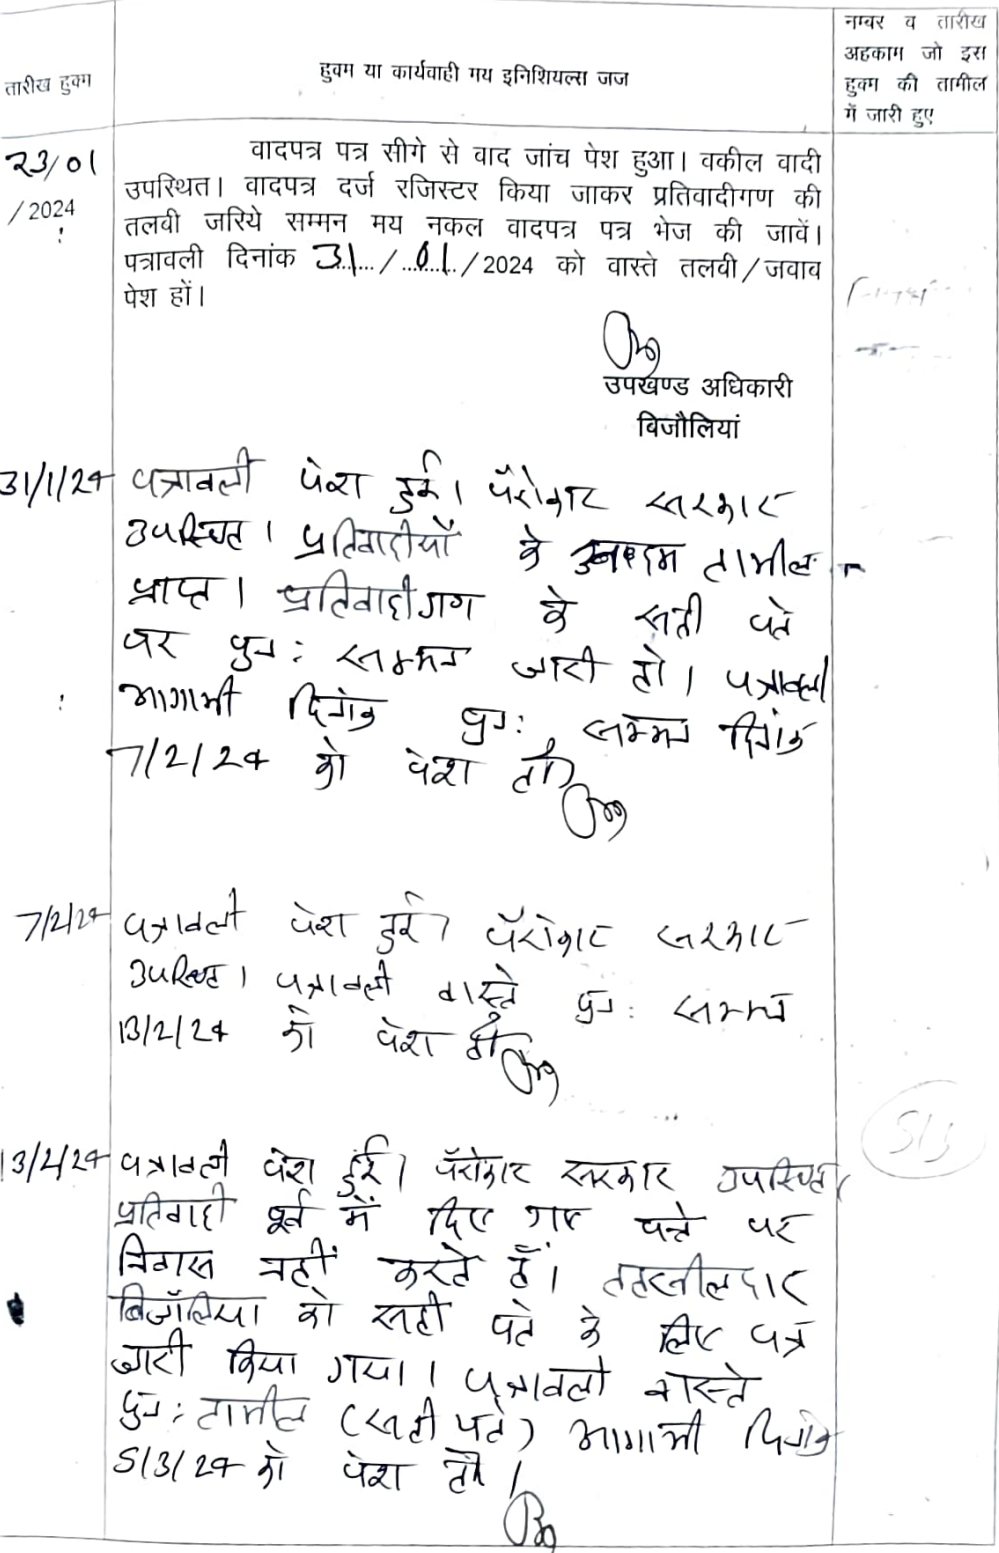 तारीख हुक्म
हुक्म या कार्यवाही मय इनिशियल्स जज
नम्बर व तारीख
अहकाम जो इस
हुक्म की तामील
में जारी हुए
23/01
/2024
वादपत्र पत्र सीगे से वाद जांच पेश हुआ। वकील वादी
उपस्थित। वादपत्र दर्ज रजिस्टर किया जाकर प्रतिवादीगण की
तलवी जरिये सम्मन मय नकल वादपत्र पत्र भेज की जावें।
पत्रावली दिनांक 31/01/2024 को वास्ते तलवी/जवाव
पेश हों।
उपखण्ड अधिकारी
बिजौलियां
31/1/24 पत्रावली पेश हुई। पैरोकार सरकार
उपस्थित। प्रतिवादीयों के तामील
प्राप्त। प्रतिवादीगण के सही पते
पर पुन: सम्मन जारी हो। पत्रावली
आगामी दिनांक पुन: सम्मन दिनांक
7/2/24 को पेश हो।
7/2/24 पत्रावली पेश हुई। पैरोकार सरकार
उपस्थित। पत्रावली वास्ते पुन: सम्मन
13/2/24 को पेश हो
13/2/24 पत्रावली पेश हुई। पैरोकार सरकार उपस्थित।
प्रतिवादी पूर्व में दिए गए पत्ते पर
निवास नहीं करते हैं। तहसीलदार
बिजौलिया को सही पते के लिए पत्र
जारी किया गया। पत्रावली वास्ते
पुन: तामील (सही पते) आगामी दिनांक
5/3/24 को पेश हो।
5/3